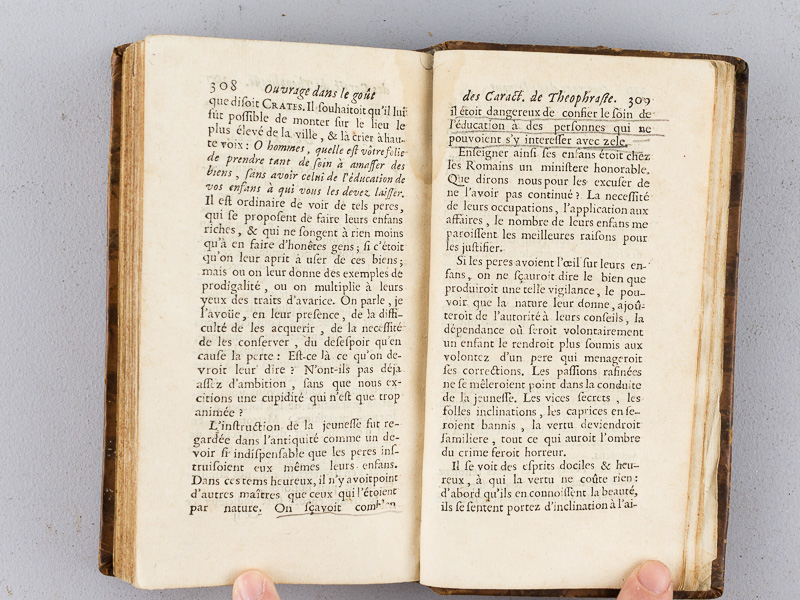 308 Ouvrage dans le goût
que disoit CRATES. Il souhaitoit qu'il lui
fût possible de monter sur le lieu le
plus élevé de la ville, & là crier à hau-
te voix : O hommes, quelle est vôtre folie
de prendre tant de soin à amasser des
biens, sans avoir celui de l'éducation de
vos enfans à qui vous les devez laisser.
Il est ordinaire de voir de tels peres,
qui se proposent de faire leurs enfans
riches, & qui ne songent à rien moins
qu'à en faire d'honêtes gens ; si c'étoit
qu'on leur aprit à user de ces biens ;
mais ou on leur donne des exemples de
prodigalité, ou on multiplie à leurs
yeux des traits d'avarice. On parle, je
l'avoüe, en leur presence, de la diffi-
culté de les acquerir, de la necessité
de les conserver, du desespoir qu'en
cause la perte : Est-ce là ce qu'on de-
vroit leur dire ? N'ont-ils pas déja
assez d'ambition, sans que nous ex-
citions une cupidité qui n'est que trop
animée ?
L'instruction de la jeunesse fut re-
gardée dans l'antiquité comme un de-
voir si indispensable que les peres ins-
truisoient eux mêmes leurs enfans.
Dans ces tems heureux, il n'y avoit point
d'autres maîtres que ceux qui l'étoient
par nature. On sçavoit combien
des Caract. de Theophraste. 309
il étoit dangereux de confier le soin de
l'éducation à des personnes qui ne
pouvoient s'y interesser avec zele.
Enseigner ainsi ses enfans étoit chez
les Romains un ministere honorable.
Que dirons nous pour les excuser de
ne l'avoir pas continué ? La necessité
de leurs occupations, l'application aux
affaires, le nombre de leurs enfans me
paroissent les meilleures raisons pour
les justifier.
Si les peres avoient l'œil sur leurs en-
fans, on ne sçauroit dire le bien que
produiroit une telle vigilance, le pou-
voir que la nature leur donne, ajoû-
teroit de l'autorité à leurs conseils, la
dépendance où seroit volontairement
un enfant le rendroit plus soumis aux
volontez d'un pere qui menageroit
ses corrections. Les passions rafinées
ne se mêleroient point dans la conduite
de la jeunesse. Les vices secrets, les
folles inclinations, les caprices en se-
roient bannis, la vertu deviendroit
familiere, tout ce qui auroit l'ombre
du crime feroit horreur.
Il se voit des esprits dociles & heu-
reux, à qui la vertu ne coûte rien :
d'abord qu'ils en connoissent la beauté,
ils se sentent portez d'inclination à l'ai-